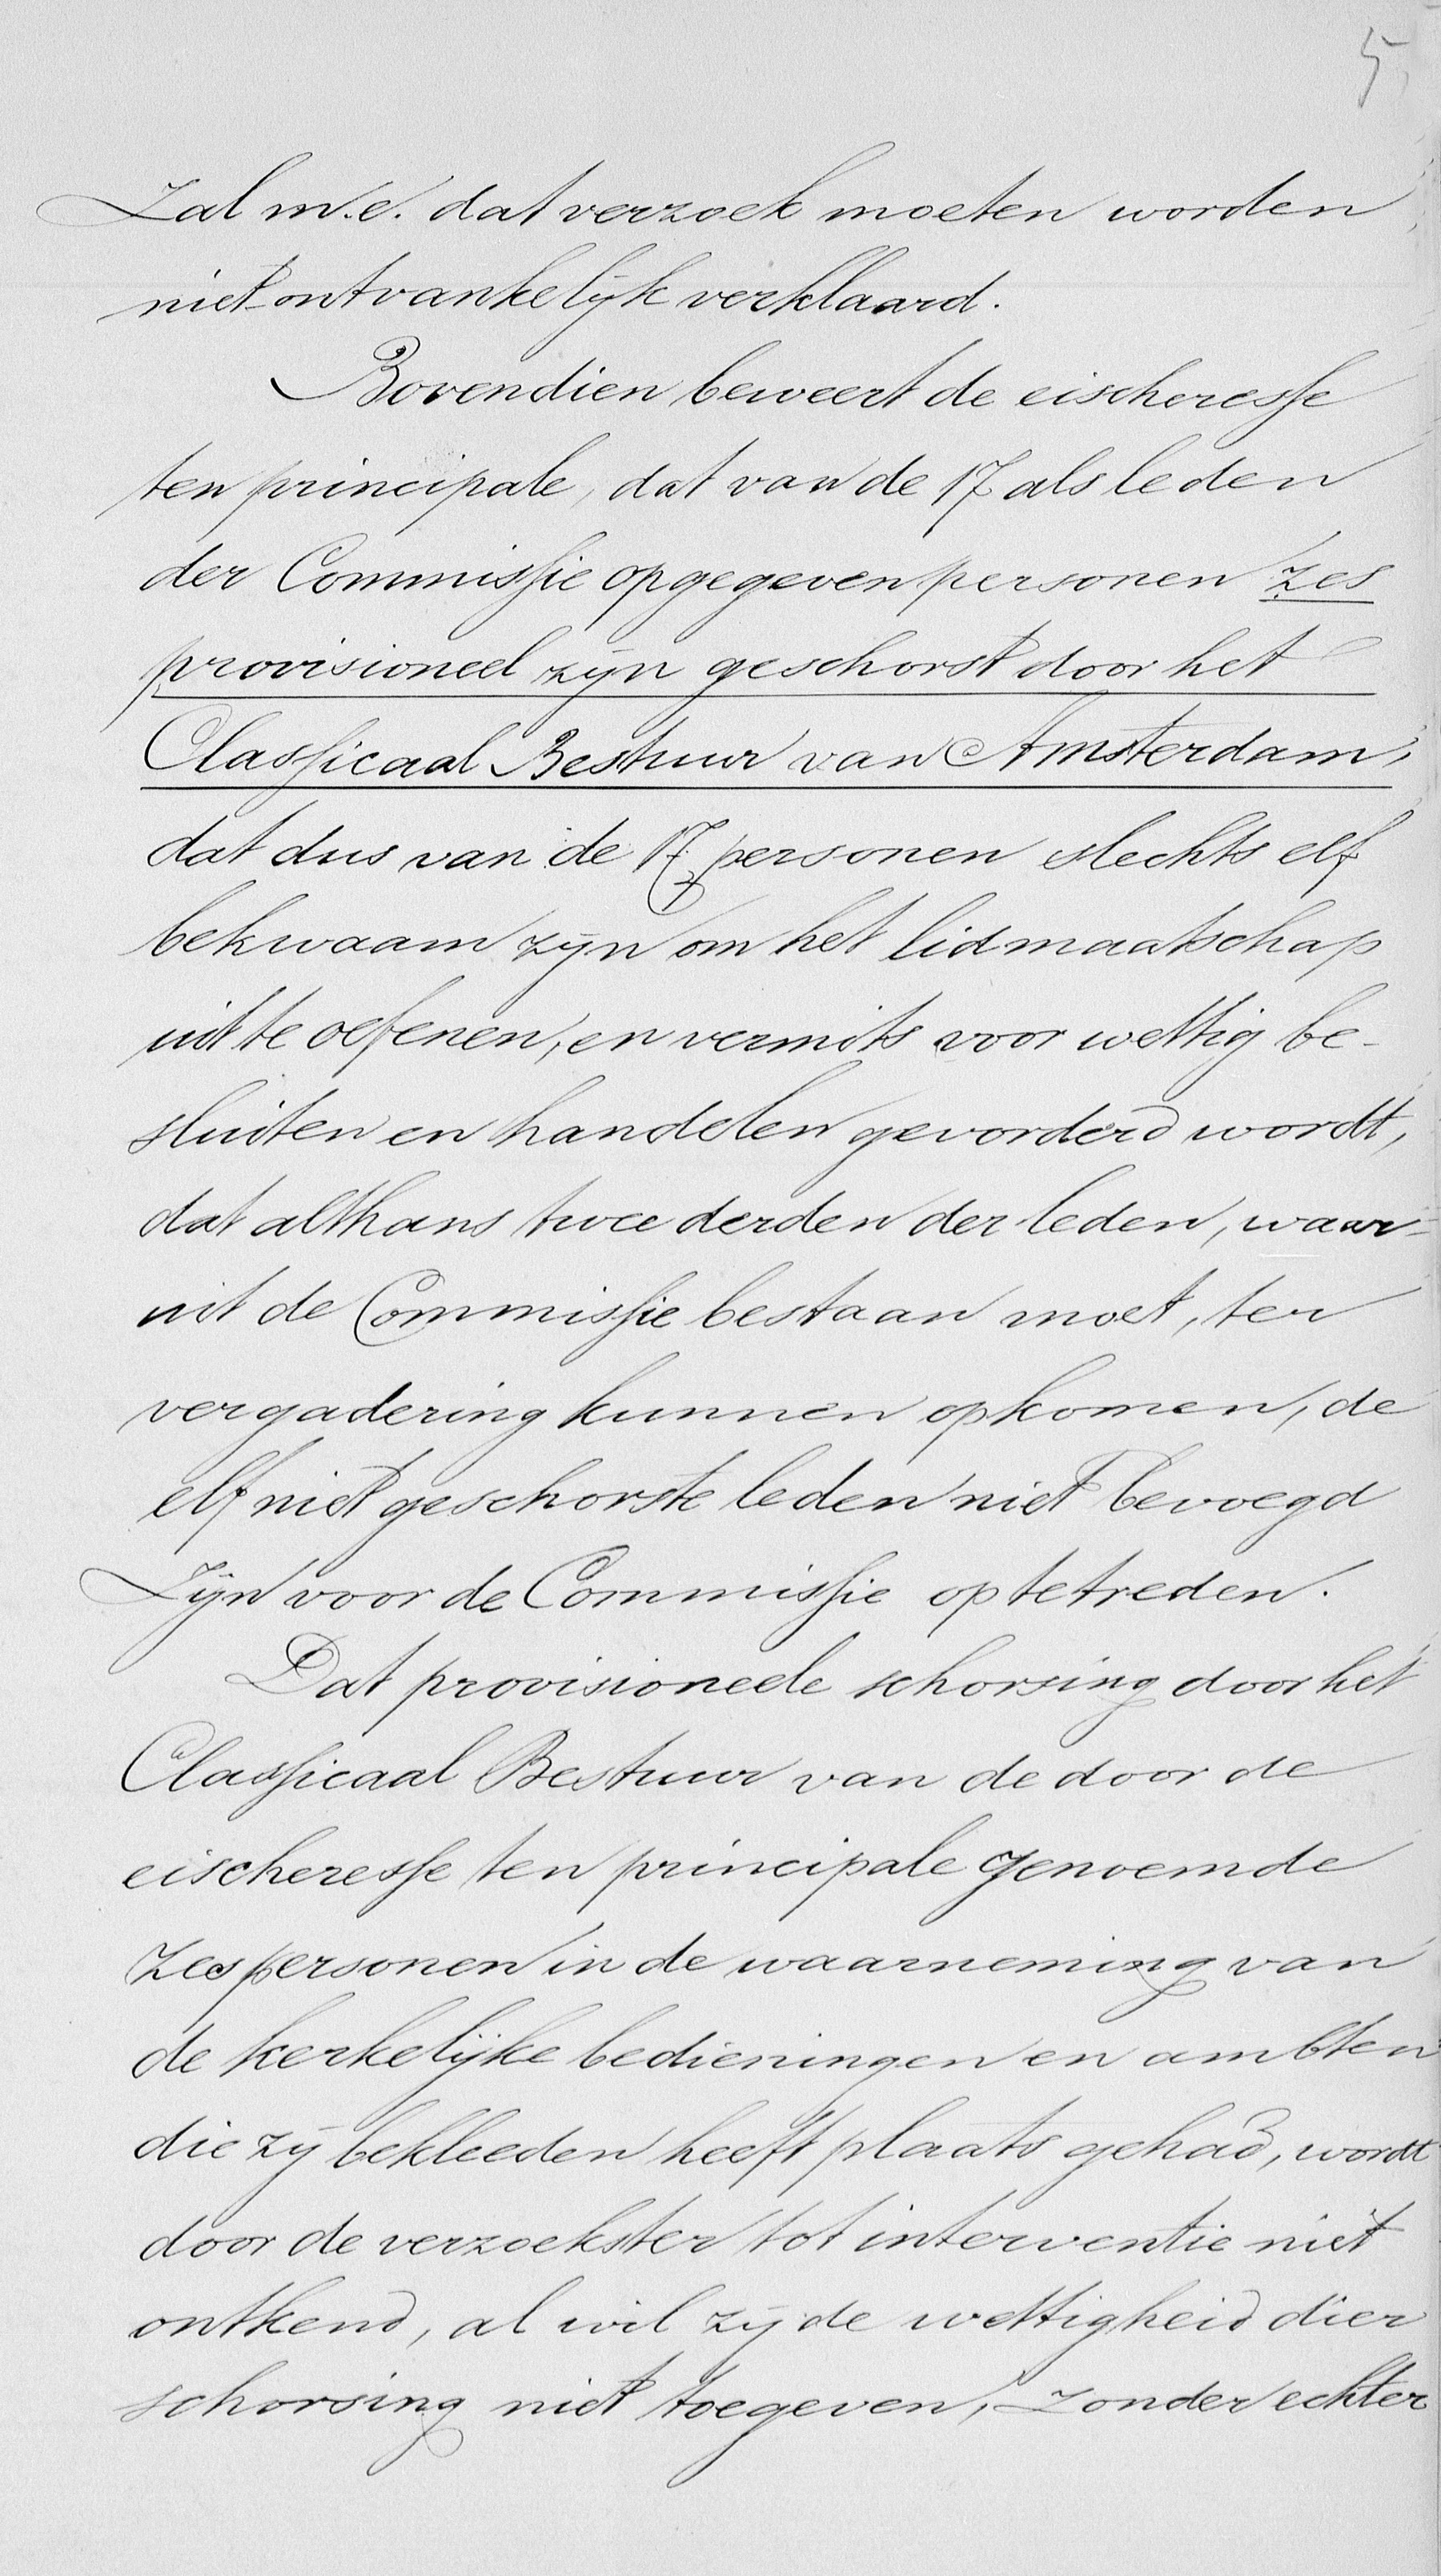 5
zal m.e. dat verzoek moeten worden
niet-ontvankelijk verklaard.
Bovendien beweert de eischeresse
ten principale, dat van de 17 als leden
der Commissie opgegeven personen zes
provisioneel zijn geschorst door het
Classicaal Bestuur van Amsterdam,
dat dus van de 17 personen slechts elf
bekwaam zijn om het lidmaatschap
uit te oefenen, en vermits voor wettig be-
sluiten en handelen gevorderd wordt,
dat althans twee derden der leden, waar-
uit de Commissie bestaan moet, ter
vergadering kunnen opkomen, de
elf niet geschorste leden niet bevoegd
zijn voor de Commissie op te treden.
Dat provisioneele schorsing door het
Classicaal Bestuur van de door de
eischeresse ten principale genoemde
zes personen in de waarneming van
de kerkelijke bedieningen en ambten
die zij bekleeden heeft plaats gehad, wordt
door de verzoekster tot interventie niet
ontkend, al wil zij de wettigheid dier
schorsing niet toegeven, zonder echter